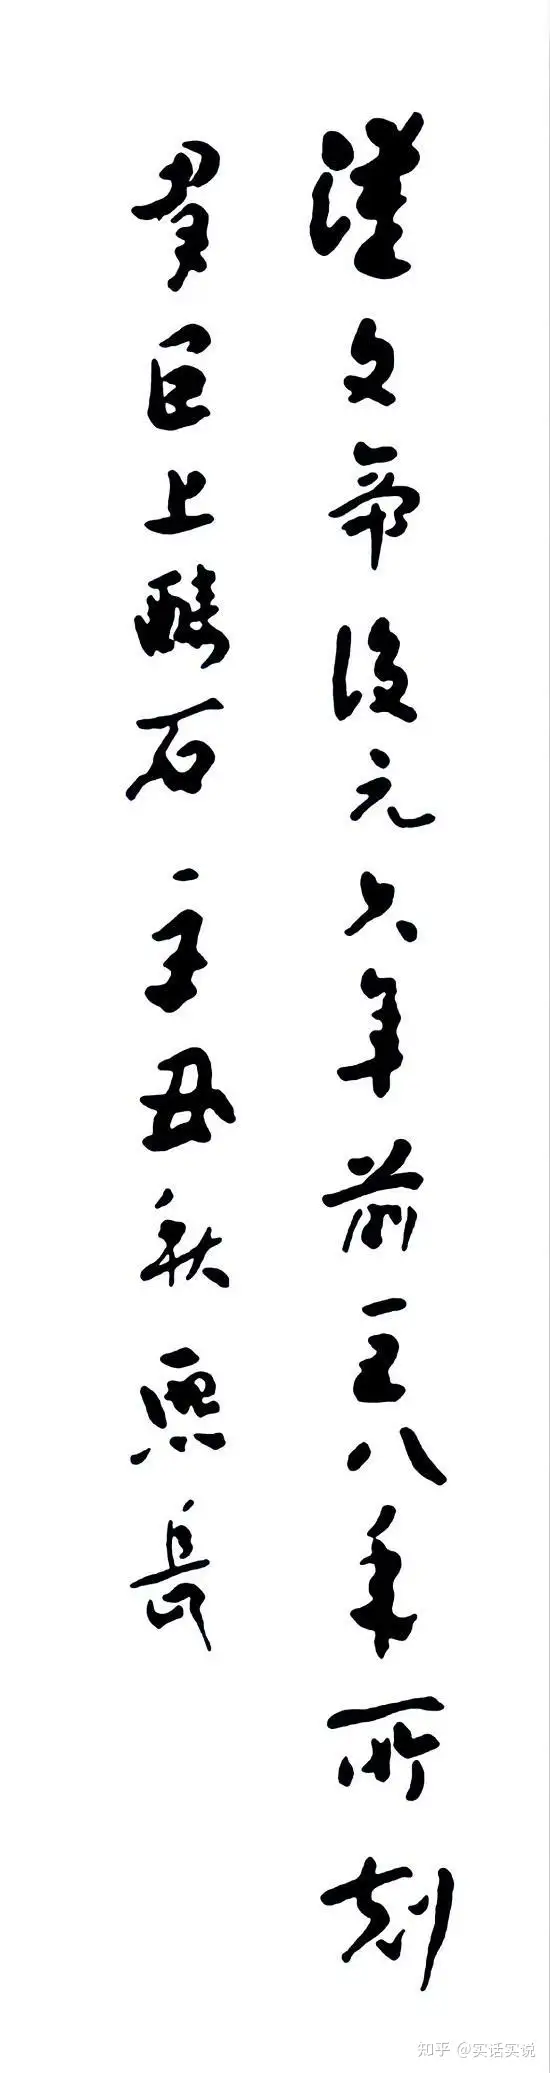 漢文帝後元六年前一五八年所刻
羣臣上醻石 辛丑秋熙長
知乎 @实话实说